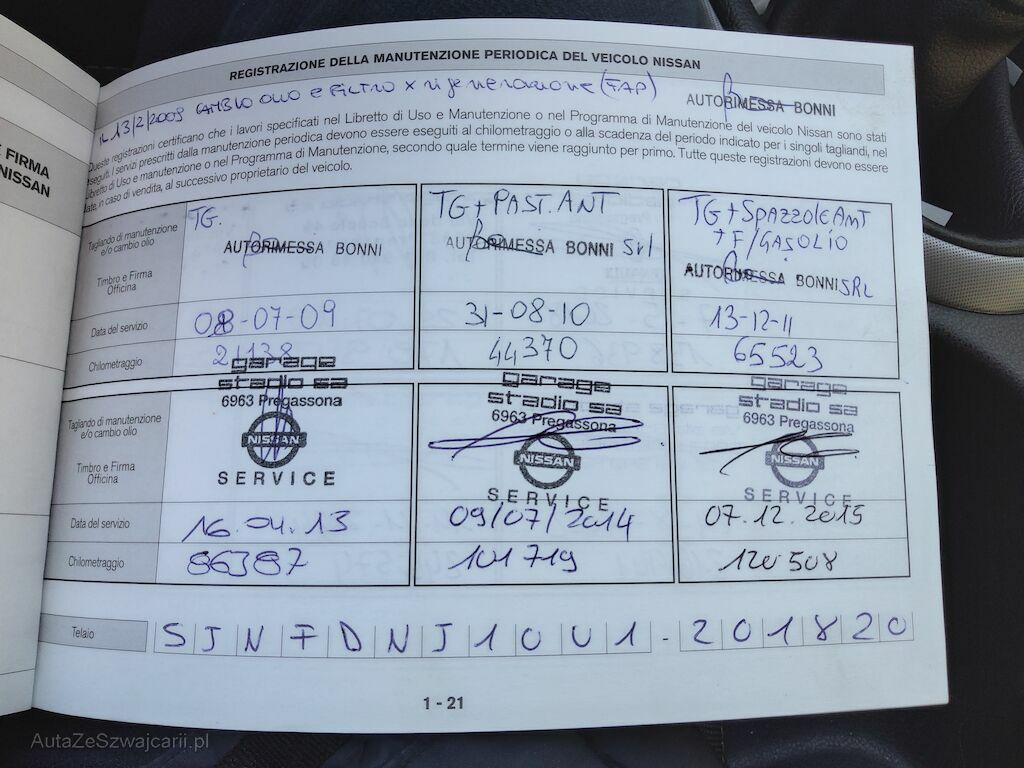 E FIRMA
NISSAN
REGISTRAZIONE DELLA MANUTENZIONE PERIODICA DEL VEICOLO NISSAN
IL 13/2/2009 CAMBIO OLIO e FILTRO x rigenerazione (FAP)
AUTORIMESSA BONNI
Queste registrazioni certificano che i lavori specificati nel Libretto di Uso e Manutenzione o nel Programma di Manutenzione del veicolo Nissan sono stati
eseguiti. I servizi prescritti dalla manutenzione periodica devono essere eseguiti al chilometraggio o alla scadenza del periodo indicato per i singoli tagliandi, nel
Libretto di Uso e manutenzione o nel Programma di Manutenzione, secondo quale termine viene raggiunto per primo. Tutte queste registrazioni devono essere
date, in caso di vendita, al successivo proprietario del veicolo.
Tagliando di manutenzione
e/o cambio olio
Timbro e Firma
Officina
TG.
AUTORIMESSA BONNI
TG + PAST. ANT
AUTORIMESSA BONNI Srl
TG + SPAZZOLE ANT
+ F/GASOLIO
AUTORIMESSA BONNI SRL
Data del servizio
08-07-09
31-08-10
13-12-11
Chilometraggio
21138
44370
65523
Tagliando di manutenzione
e/o cambio olio
Timbro e Firma
Officina
garage
stadio sa
6963 Pregassona
NISSAN
SERVICE
garage
stadio sa
6963 Pregassona
NISSAN
SERVICE
garage
stadio sa
6963 Pregassona
NISSAN
SERVICE
Data del servizio
16.04.13
09/07/2014
07.12.2015
Chilometraggio
86387
101719
120508
Telaio
SJNFDNJ10U1-201820
1 - 21
AutaZeSzwajcarii.pl